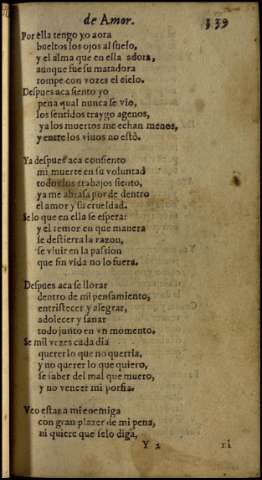 de Amor. 339
Por ella tengo yo aora
bueltos los ojos al suelo,
y el alma que en ella adora,
aunque fue su matadora
rompe con vozes el cielo.
Despues aca siento yo
pena qual nunca se vio,
los sentidos traygo agenos,
ya los muertos me echan menos,
y entre los viuos no estò.
Ya despues aca consiento
mi muerte en su voluntad
todos los trabajos siento,
ya me abrasa por de dentro
el amor y su crueldad.
Se lo que en ella se espera:
y el temor en que manera
se destierra la razon,
se viuir en la passion
que sin vida no lo fuera.
Despues aca se llorar
dentro de mi pensamiento,
entristecer y alegrar,
adolecer y sanar
todo junto en vn momento.
Se mil vezes cada dia
querer lo que no querria,
y no querer lo que quiero,
se saber del mal que muero,
y no vencer mi porfia.
Veo estar a mi enemiga
con gran plazer de mi pena,
ni quiere que se lo diga,
Y 2 ni